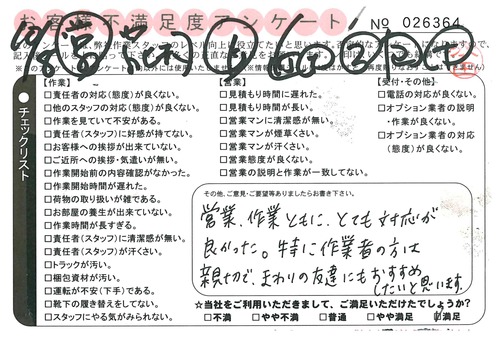 お客様不満足度アンケート
No 026364
チェックリスト
【作業】
□責任者の対応(態度)が良くない。
□他のスタッフの対応(態度)が良くない。
□作業を見ていて不安がある。
□責任者(スタッフ)に好感が持てない。
□お客様への挨拶が出来ていない。
□ご近所への挨拶・気遣いが無い。
□作業開始前の内容確認がなかった。
□作業開始時間が遅れた。
□荷物の取り扱いが雑である。
□お部屋の養生が出来ていない。
□作業時間が長すぎる。
□責任者(スタッフ)に清潔感が無い。
□責任者(スタッフ)が汗くさい。
□トラックが汚い。
□梱包資材が汚い。
□運転が不安(下手)である。
□靴下の履き替えをしてない。
□スタッフにやる気がみられない。
【営業】
□見積もり時間に遅れた。
□見積もり時間が長い。
□営業マンに清潔感が無い。
□営業マンが煙草くさい。
□営業マンが汗くさい。
□営業態度が良くない。
□営業の説明と作業が一致してない。
【受付・その他】
□電話の対応が良くない。
□オプション業者の説明
・作業が良くない。
□オプション業者の対応
(態度)が良くない。
その他、ご意見・ご要望等ありましたらお書き下さい。
営業、作業ともに、とても対応が
良かった。特に作業者の方は
親切で、まわりの友達にもおすすめ
したいと思います。
☆当社をご利用いただきまして、ご満足いただけたでしょうか?
□不満 □やや不満 □普通 □やや満足 □満足